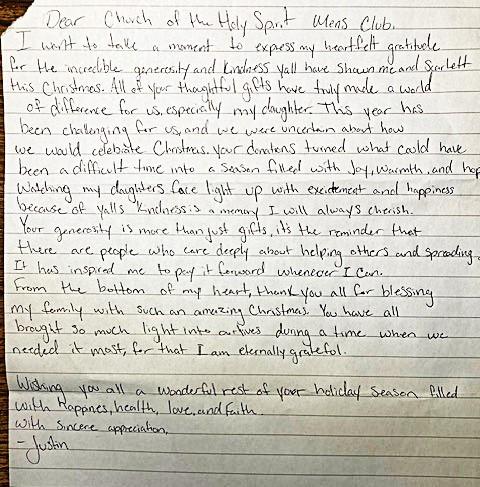 Dear Church of the Holy Spirit Mens Club.
I want to take a moment to express my heartfelt gratitude
for the incredible generosity and kindness yall have shown me and Scarlett
this Christmas. All of your thoughtful gifts have truly made a world
of difference for us, especially my daughter. This year has
been challenging for us, and we were uncertain about how
we would celebrate Christmas. your donations turned what could have
been a difficult time into a season filled with Joy, warmth, and
Watching my daughters face light up with excitement and happiness
because of yalls kindness is a memory I will always cherish.
Your generosity is more than just gifts, its the reminder that
there are people who care deeply about helping others and spreading
It has inspired me to pay it forward whenever I can.
From the bottom of my heart, thank you all for blessing
my family with such an amazing Christmas. You have all
brought so much light into our lives during a time when we
needed it most, for that I am eternally grateful.
Wishing you all a wonderful rest of your holiday season filled
with Happines, health, love, and faith.
With sincere appreciation,
- Justin